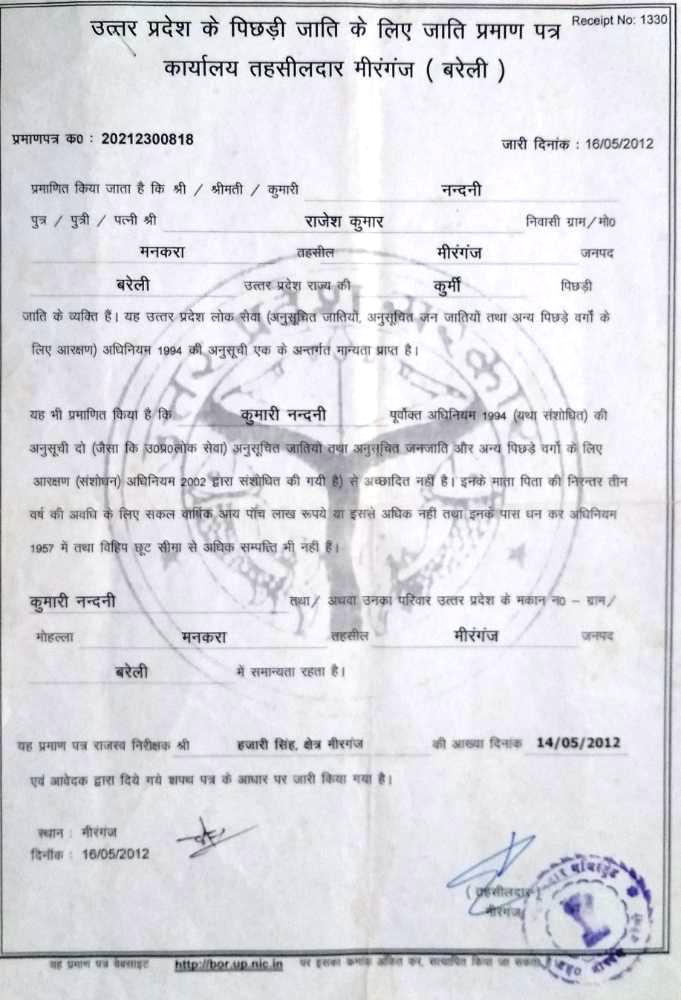 Receipt No: 1330
उत्तर प्रदेश के पिछड़ी जाति के लिए जाति प्रमाण पत्र
कार्यालय तहसीलदार मीरंगंज ( बरेली )
प्रमाणपत्र क0 : 20212300818
जारी दिनांक : 16/05/2012
प्रमाणित किया जाता है कि श्री / श्रीमती / कुमारी नन्दनी
पुत्र / पुत्री / पत्नी श्री राजेश कुमार निवासी ग्राम/मो0
मनकरा तहसील मीरंगंज जनपद
बरेली उत्तर प्रदेश राज्य की कुर्मी पिछड़ी
जाति के व्यक्ति हैं। यह उत्तर प्रदेश लोक सेवा (अनुसूचित जातियों, अनुसूचित जन जातियों तथा अन्य पिछड़े वर्गो के
लिए आरक्षण) अधिनियम 1994 की अनुसूची एक के अन्तर्गत मान्यता प्राप्त है।
यह भी प्रमाणित किया है कि कुमारी नन्दनी पूर्वोक्त अधिनियम 1994 (यथा संशोधित) की
अनुसूची दो (जैसा कि उ0प्र0लोक सेवा) अनुसूचित जातियों तथा अनुसूचित जनजाति और अन्य पिछड़े वर्गो के लिए
आरक्षण (संशोधन) अधिनियम 2002 द्वारा संशोधित की गयी है) से अच्छादित नहीं है। इनके माता पिता की निरन्तर तीन
वर्ष की अवधि के लिए सकल वार्षिक आय पॉच लाख रूपये या इससे अधिक नही तथा इनके पास धन कर अधिनियम
1957 में तथा विहिप छूट सीमा से अधिक सम्पत्ति भी नहीं हैं।
कुमारी नन्दनी तथा/ अथवा उनका परिवार उत्तर प्रदेश के मकान न0 - ग्राम/
मोहल्ला मनकरा तहसील मीरंगंज जनपद
बरेली में समान्यता रहता है।
यह प्रमाण पत्र राजस्व निरीक्षक श्री हजारी सिंह, क्षेत्र मीरगंज की आख्या दिनांक 14/05/2012
एवं आवेदक द्वारा दिये गये शपथ पत्र के आधार पर जारी किया गया है।
स्थान : मीरगंज
दिनॉक : 16/05/2012
( तहसीलदार )
मीरगंज
यह प्रमाण पत्र वेबसाइट http://bor.up.nic.in पर इसका कमांक अंकित कर, सत्यापित किया जा सकता